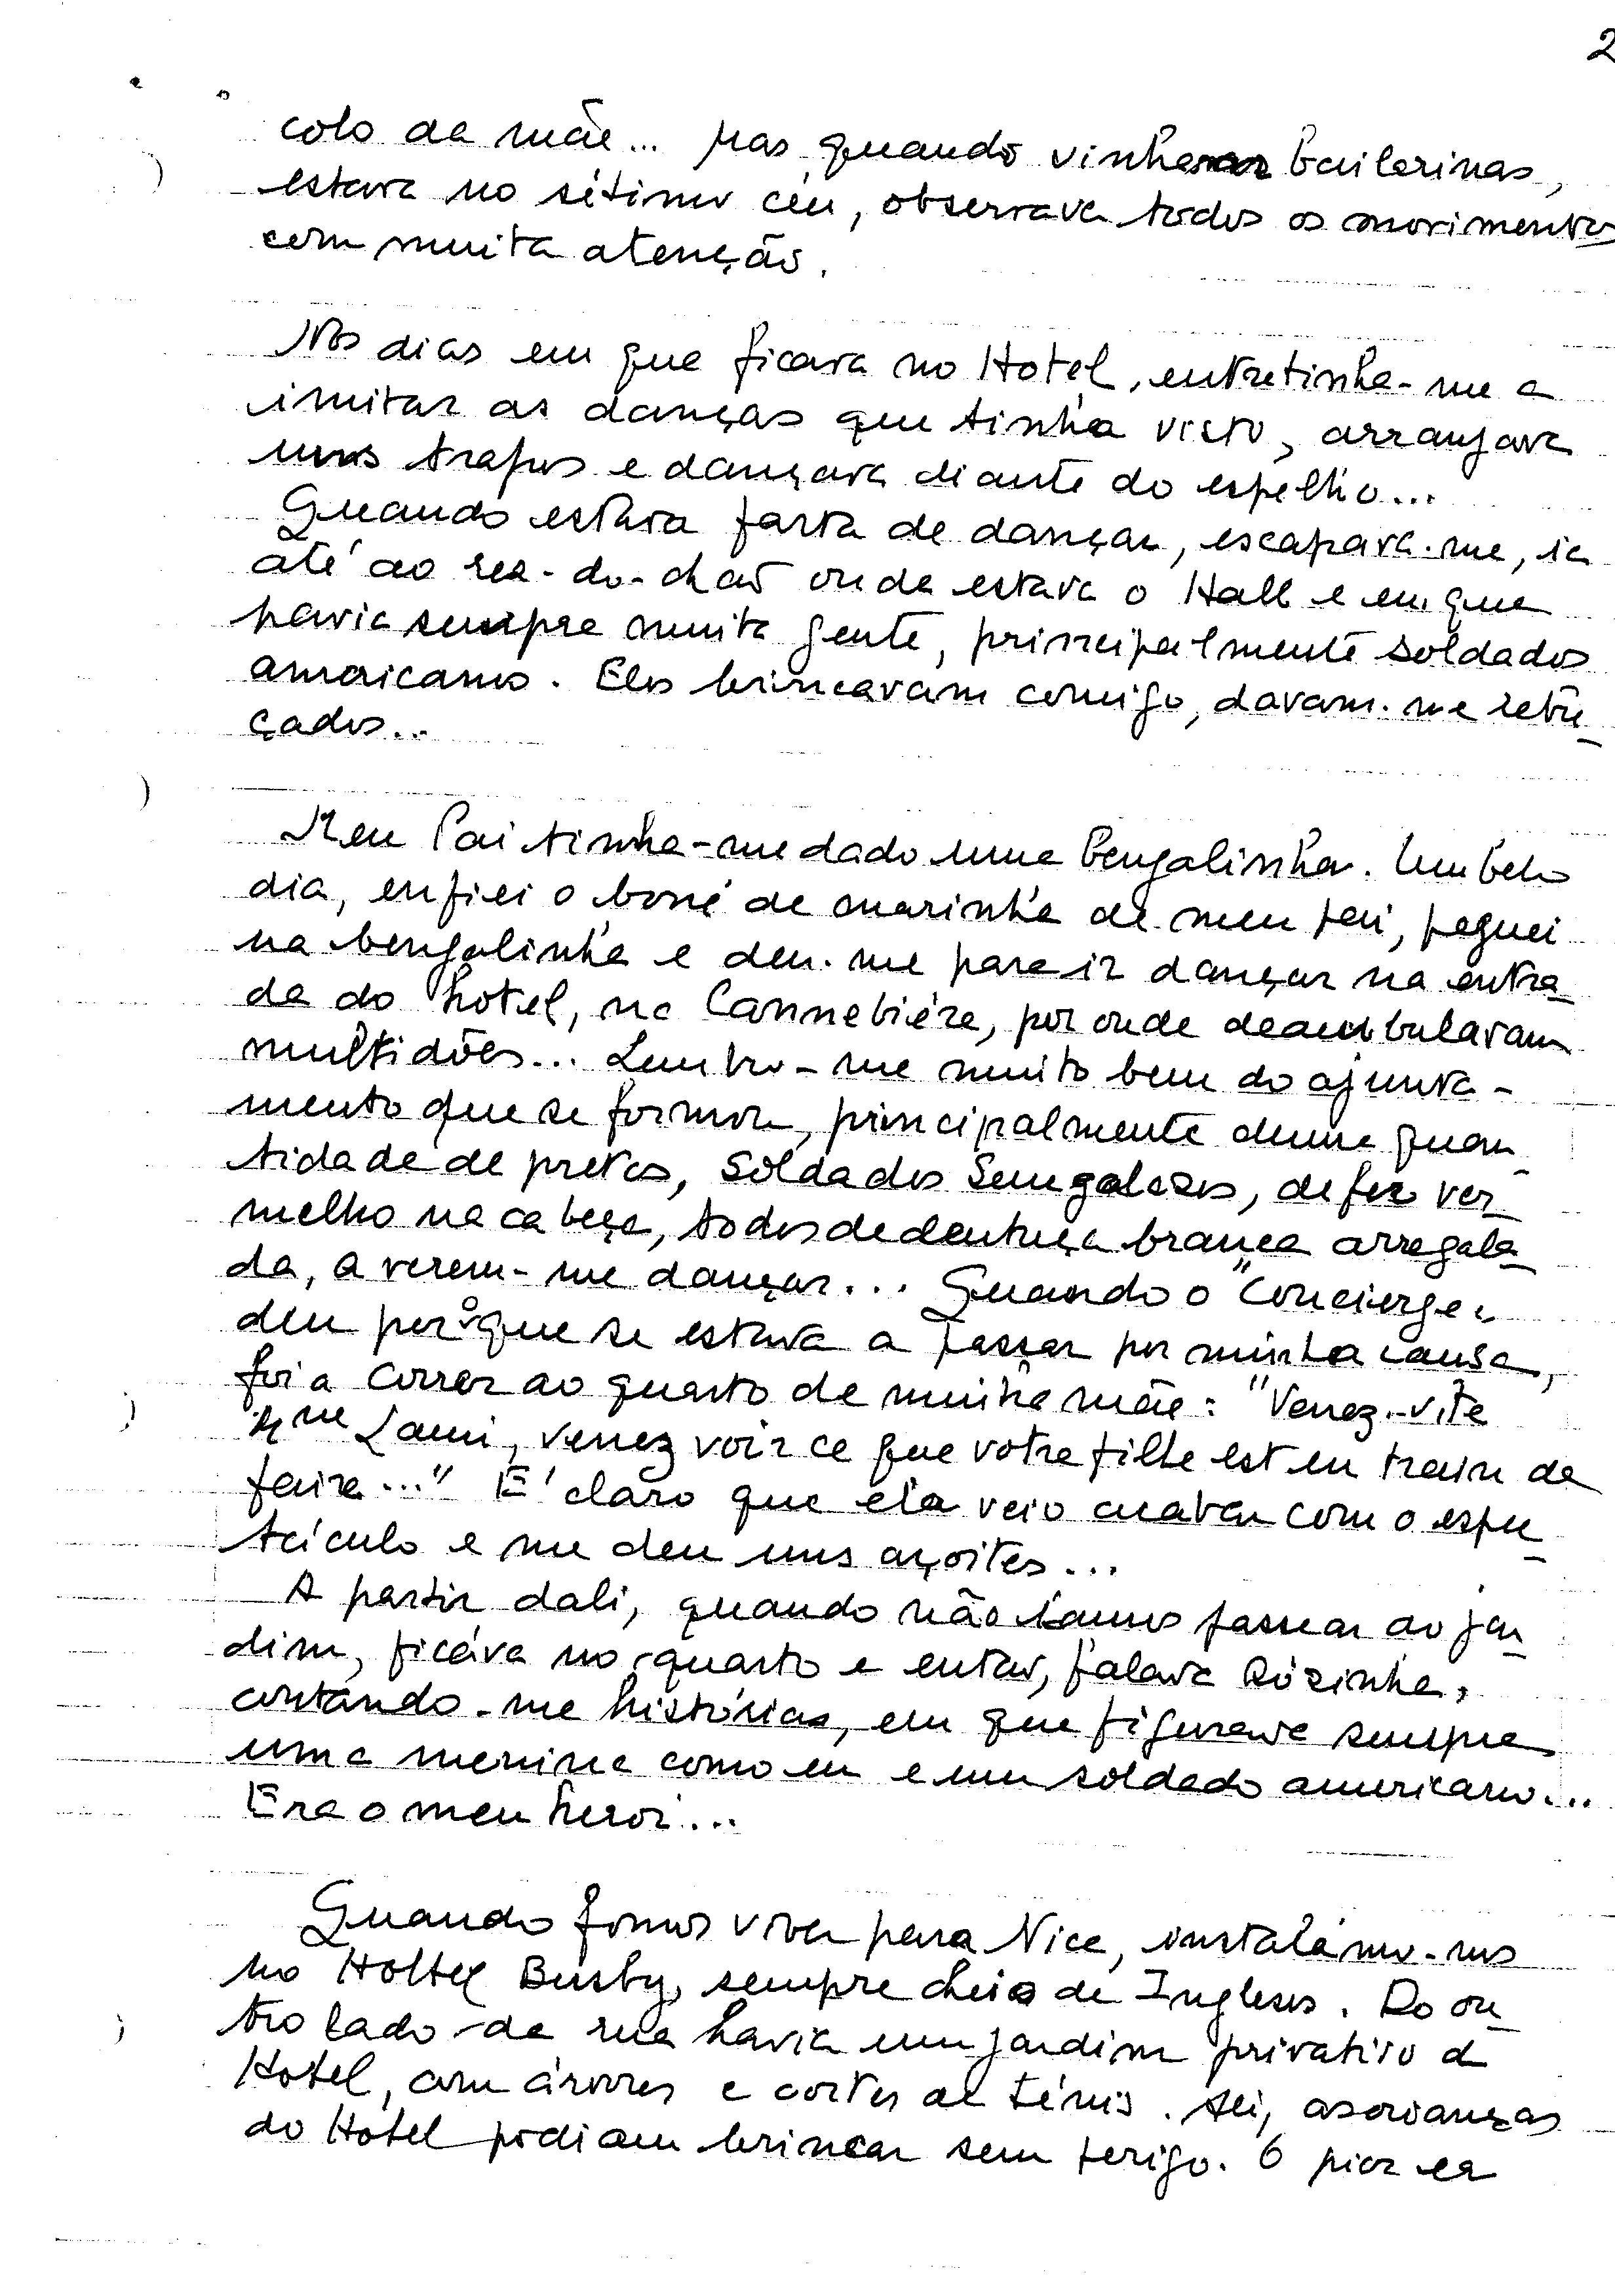 2
colo da mãe... mas quando vinham bailarinas,
estava no sétimo céu, observava todos os movimentos
com muita atenção.
Nos dias em que ficava no Hotel, entretinha-me a
imitar as danças que tinha visto, arranjava
uns trapos e dançava diante do espelho...
Quando estava farta de dançar, escapava-me, ia
até ao rez-do-chão onde estava o Hall e em que
havia sempre muita gente, principalmente soldados
americanos. Eles brincavam comigo, davam-me rebu_
çados...
Meu Pai tinha-me dado uma bengalinha. Um belo
dia, enfiei o boné de marinha de meu pai, peguei
na bengalinha e deu-me para ir dançar na entra_
da do hotel, na Cannebiére, por onde deambulavam
multidões... Lembro-me muito bem do ajunta-
mento que se formou, principalmente duma quan_
tidade de pretos, soldados Senegaleses, de fez ver_
melho na cabeça, todos de dentuça branca arregala_
da, a verem-me dançar... Quando o "Concierge"
deu pelo que se estava a passar por minha causa,
foi a correr ao quarto de minha mãe: "Venez-vite
Mme Lami, venez voir ce que votre fille est en train de
faire..." É claro que ela veio acabar com o espec_
táculo e me deu uns açoites...
A partir dali, quando não íamos passear ao jar_
dim, ficava no quarto e então, falava sózinha,
contando-me histórias, em que figurava sempre
uma menina como eu e um soldado americano...
Era o meu heroi...
Quando fomos viver para Nice, instalámo-nos
no Holtel Busby, sempre cheio de Ingleses. Do ou_
tro lado da rua havia um jardim privativo d
Hotel, com árvores e cortes de ténis. Ali, as crianças
do Hotel podiam brincar sem perigo. O pior er